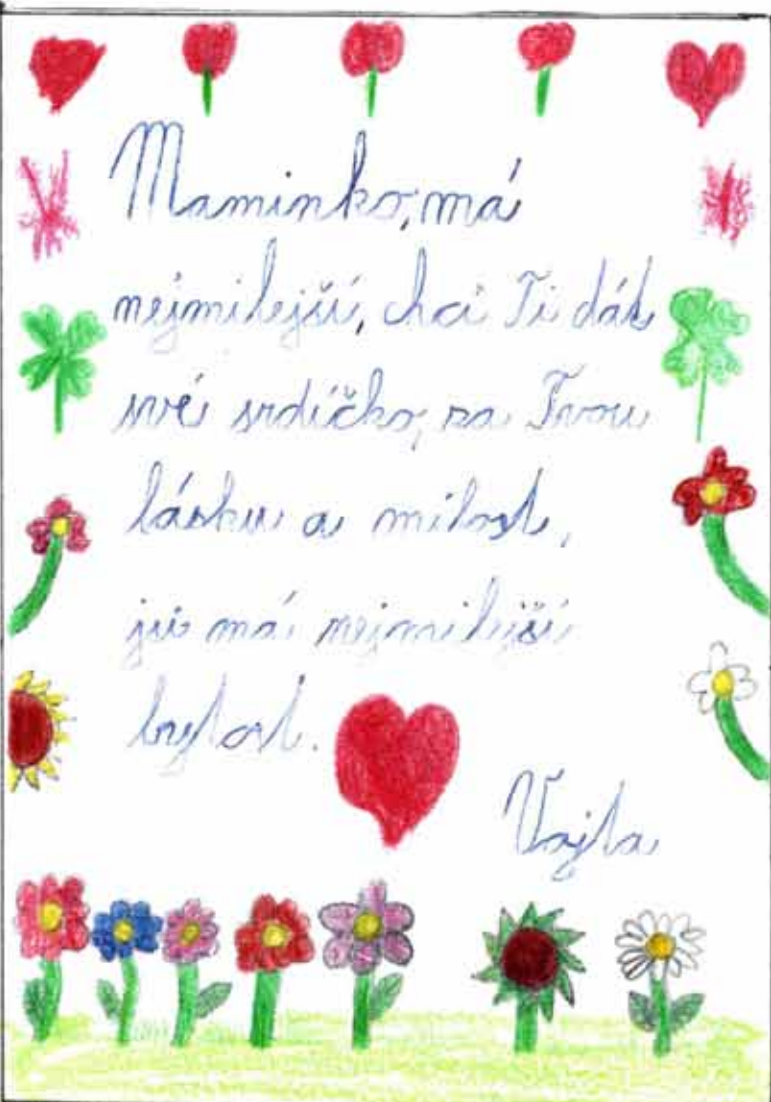 Maminko, má
nejmilejší, chci Ti dát
své srdíčko, za Tvou
lásku a milost,
jsi má nejmilejší
bytost.
Vojta